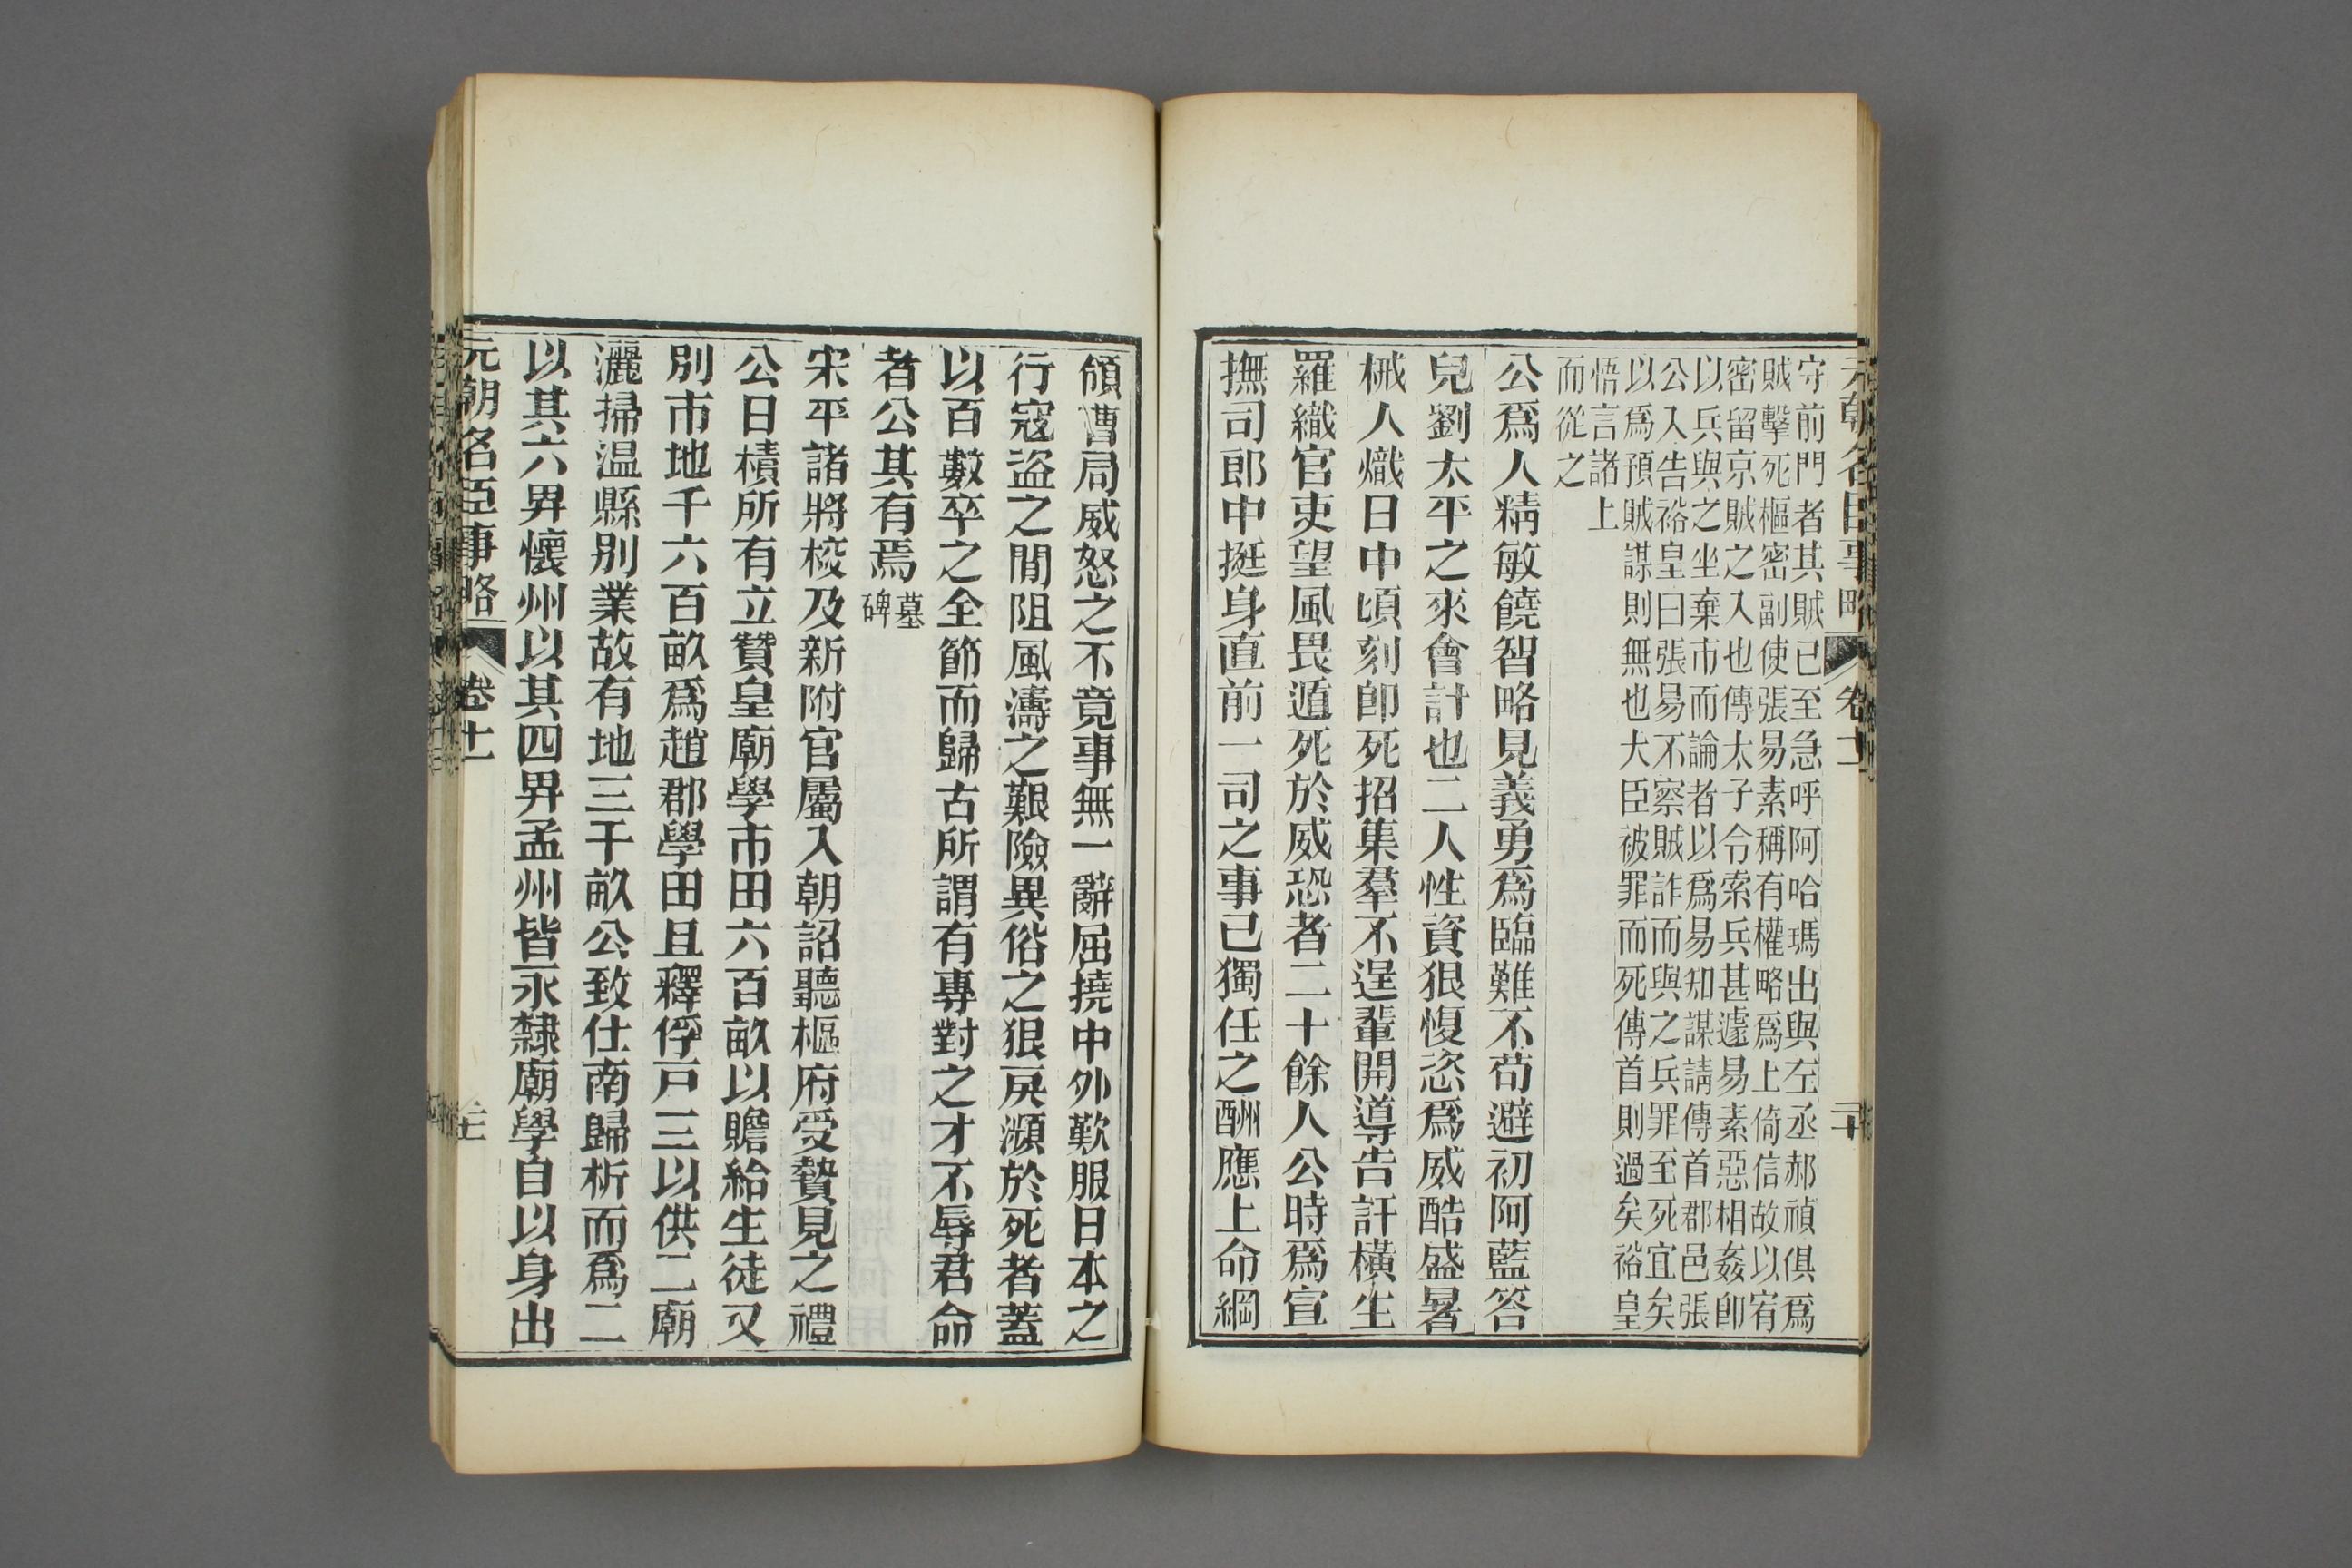 元朝名臣事略 卷十一 二十
守前門者其賊已至急呼阿哈瑪出與左丞郝禎俱爲
賊擊死樞密副使張易素稱有權略爲上倚信故以宥
密留京賊之入也傳太子令索兵甚遽易素惡相姦卽
以兵與之坐棄市而論者以爲易知謀請傳首郡邑張
公入告裕皇曰張易不察賊詐而與之兵罪至死宜矣
以爲預賊謀則無也大臣被罪而死傳首則過矣裕皇
悟言諸上
而從之
公爲人精敏饒智略見義勇爲臨難不苟避初阿藍答
兒劉太平之來會計也二人性資狠愎恣爲威酷盛暑
械人熾日中頃刻卽死招集羣不逞輩開導告訐橫生
羅織官吏望風畏遁死於威恐者二十餘人公時爲宣
撫司郎中挺身直前一司之事己獨任之酬應上命綱
領曹局威怒之不竟事無一辭屈撓中外歎服日本之
行寇盜之閒阻風濤之艱險異俗之狠戾瀕於死者蓋
以百數卒之全節而歸古所謂有專對之才不辱君命
者公其有焉墓碑
宋平諸將校及新附官屬入朝詔聽樞府受贄見之禮
公日積所有立贊皇廟學市田六百畝以贍給生徒又
別市地千六百畝爲趙郡學田且釋俘戸三以供二廟
灑掃温縣別業故有地三千畝公致仕南歸析而爲二
以其六畀懷州以其四畀孟州皆永隸廟學自以身出
元朝名臣事略 卷十一